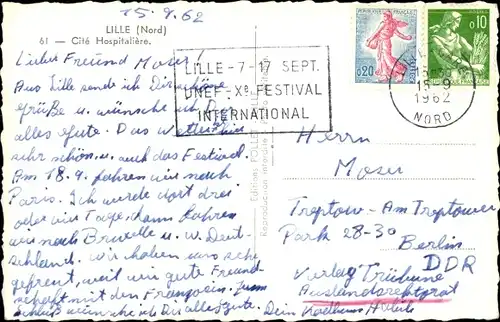 15.9.62
LILLE (Nord)
61 — Cité Hospitalière.
Lieber Freund Moser!
Aus Lille sende ich Dir schöne
Grüße u. wünsche ich Dir
alles Gute. Das Wetter hier
sehr schön u. auch das Festival.
Am 18.9. fahren wir nach
Paris. Ich wurde dort drei
oder vier Tage. dann fahren
wir nach u. Deut-
schland. wir haben uns sehr
gefreut, weil wir gute Freund-
schaft mit den Franzosen. Zum
Schluß wünsche ich Dir alles Gute. Dein
LILLE - 7-17 SEPT.
UNEF - Xe FESTIVAL
INTERNATIONAL
0,20
0,10
15-9
1962
NORD
Herrn
Moser
Treptow - Am Treptower
Park 28-30
Berlin
DDR
Verlag Tribüne